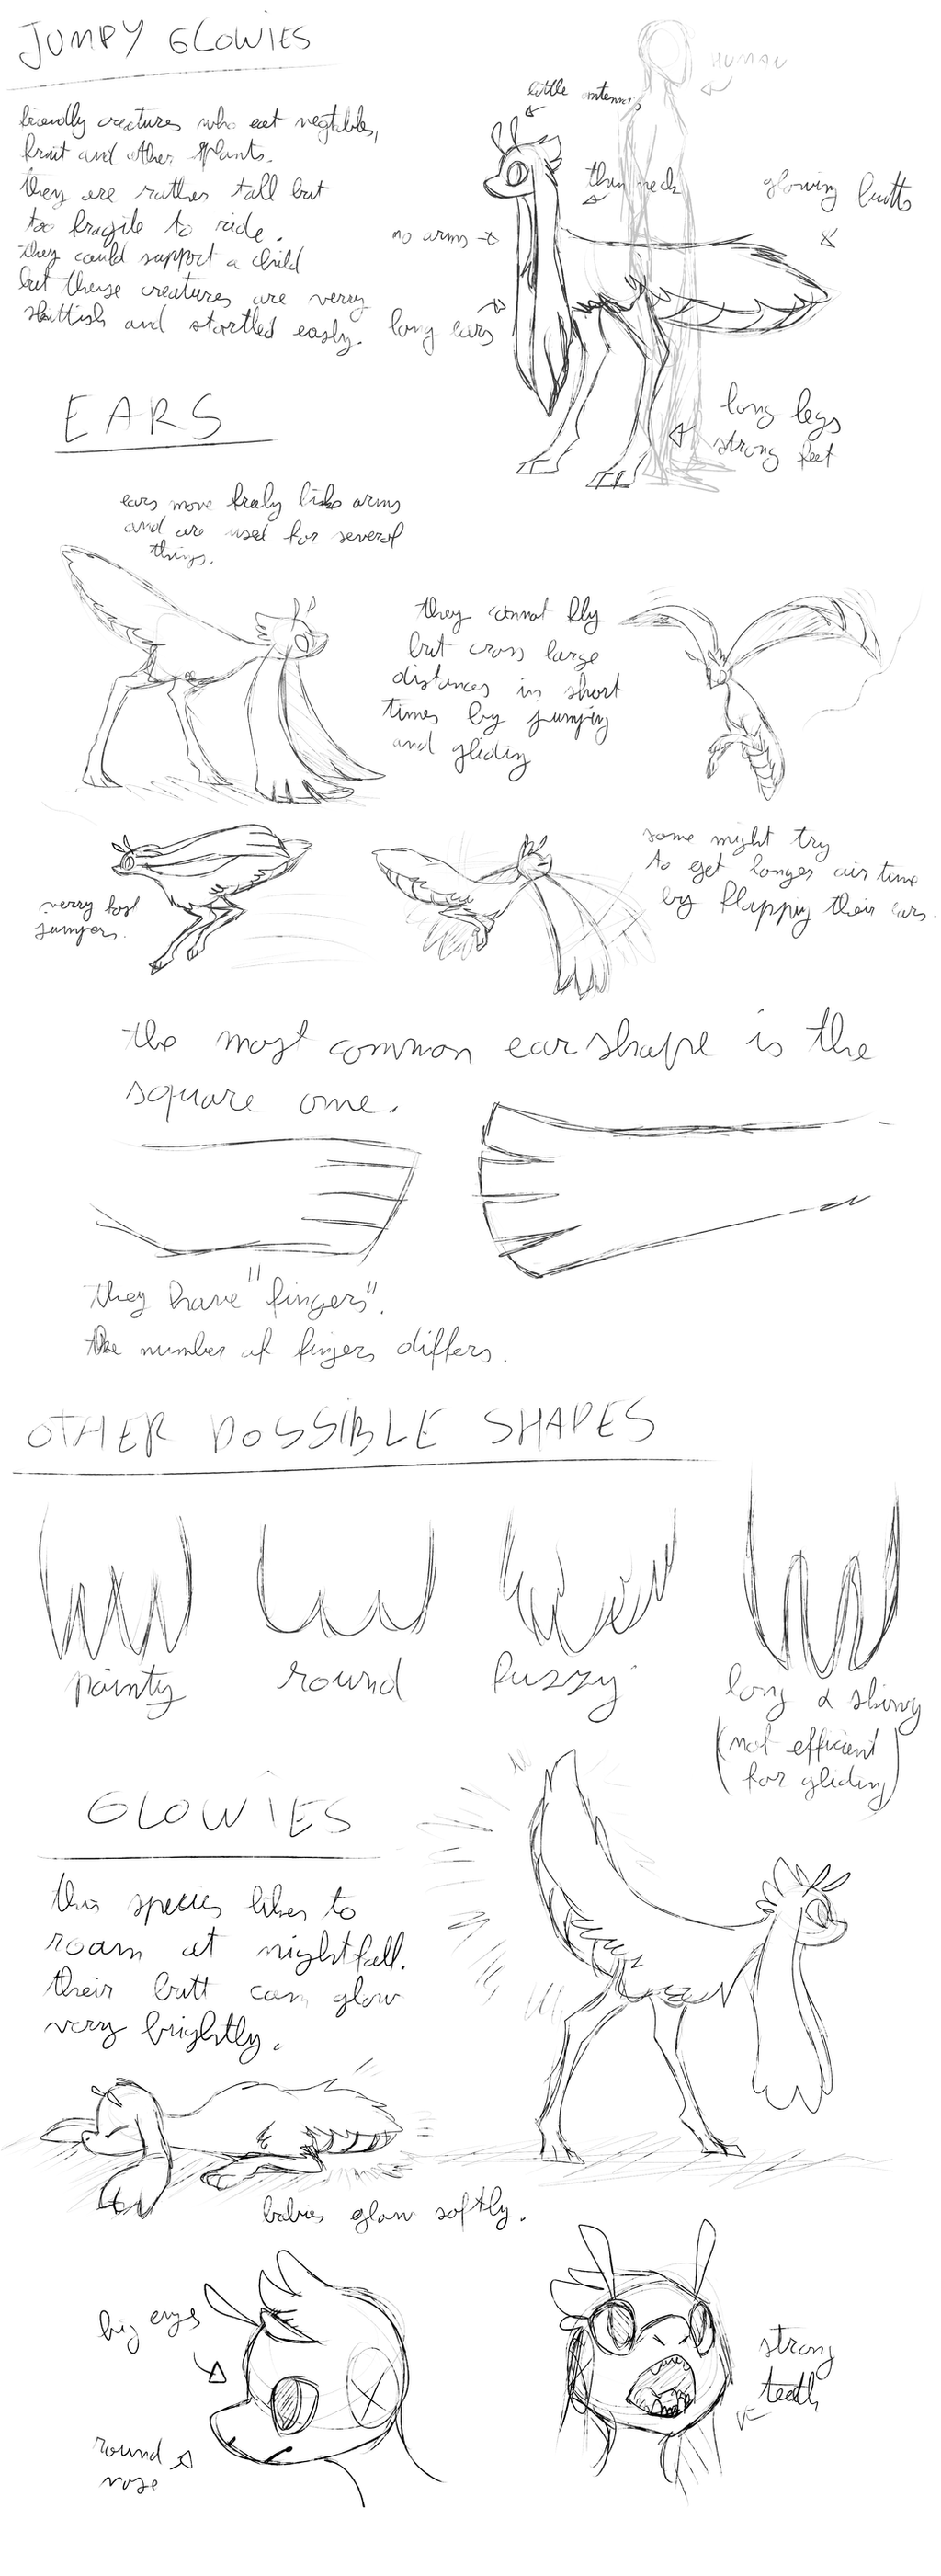 JUMPY GLOWIES
HUMAN
little antennas
friendly creatures who eat vegtables,
fruit and other plants.
they are rather tall but
too fragile to ride.
they could support a child
but these creatures are verry
skittish and startled easly.
thin neck
glowing butts
no arms
long ears
long legs
strong feet
EARS
ears move freely like arms
and are used for several
things.
they cannot fly
but cross large
distances in short
times by jumping
and gliding
verry fast
jumpers.
some might try
to get longer air time
by flappy their ears.
the most common ear shape is the
square one.
they have "fingers".
the number of fingers differs.
OTHER POSSIBLE SHAPES
pointy
round
fuzzy
long & skinny
(not efficient
for gliding)
GLOWIES
this species likes to
roam at nightfall.
their butt can glow
very brightly.
babies glow softly.
big eyes
round
nose
strong
teeth